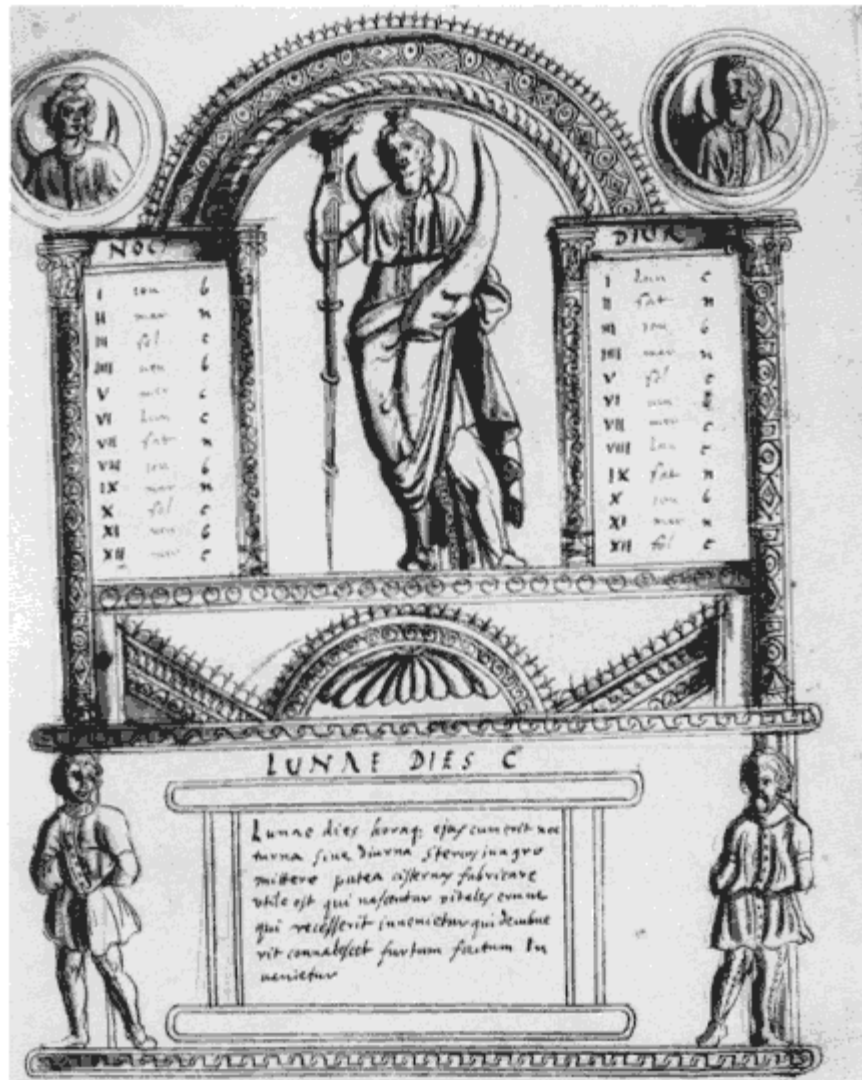 NOC
I iou b
II mar n
III sol c
IIII uen b
V mer c
VI lun c
VII sat n
VIII iou b
IX mar n
X sol c
XI uen b
XII mer c
DIUR
I lun c
II sat n
III iou b
IIII mar n
V sol c
VI uen b
VII mer c
VIII lun c
IX sat n
X iou b
XI mar n
XII sol c
LUNAE DIES C
Lunae dies horaq; ejus cum erit noc
turna siue diurna stercus in agro
mittere putea cisternas fabricare
utile est qui nascentur vitales erunt
qui recesserit inuenietur qui decubue
rit conualescet furtum factum In
uenietur